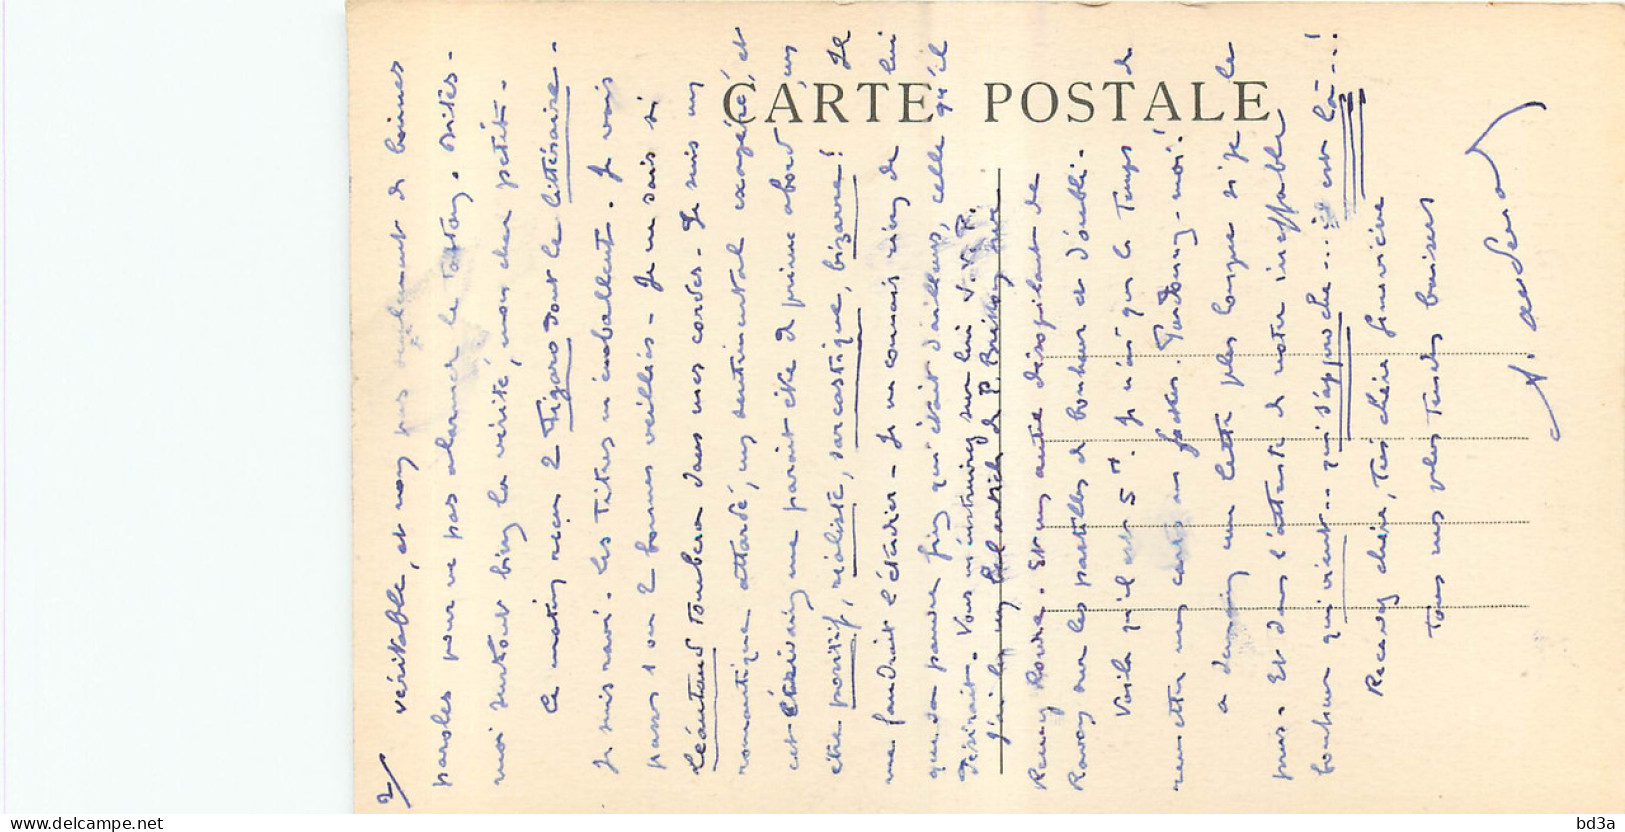 CARTE POSTALE
2/ véritable, et non pas seulement de bonnes
paroles pour ne pas alarmer le . Dites-
moi surtout bien la vérité, mon cher petit.
Ce matin reçu 2 Figaro dont le littéraire.
Je suis ravi. Les titres m'emballent. Je vais
passer 1 ou 2 bonnes veillées. Je ne sais si
Léautaud tombera dans mes cordes. Je suis un
romantique attardé, un sentimental exagéré, et
cet écrivain me paraît être de prime abord un
être positif, réaliste, sarcastique, bizarre! Il
me faudrait l'étudier. Je ne connais rien de lui
que son pauvre fin qui était d'ailleurs, celle qu'il
désirait. Vous m'instruirez sur lui S.V.P.
J'ai lu un bel article de P. Brisson sur
Renay Rovère. Et un autre désopilant de
Ravon sur les pastilles de bonheur et d'oubli.
Voilà qu'il est 5 H. Je n'ai que le temps de
remettre mes cartes au facteur. Pardonnez-moi!
à demain une lettre plus longue si je le
puis. Et dans l'attente de notre ineffable
bonheur qui vient... qui s'approche... il est là...!
Recevez chère, très chère Geneviève
tous mes plus tendres baisers
bd3a
www.delcampe.net